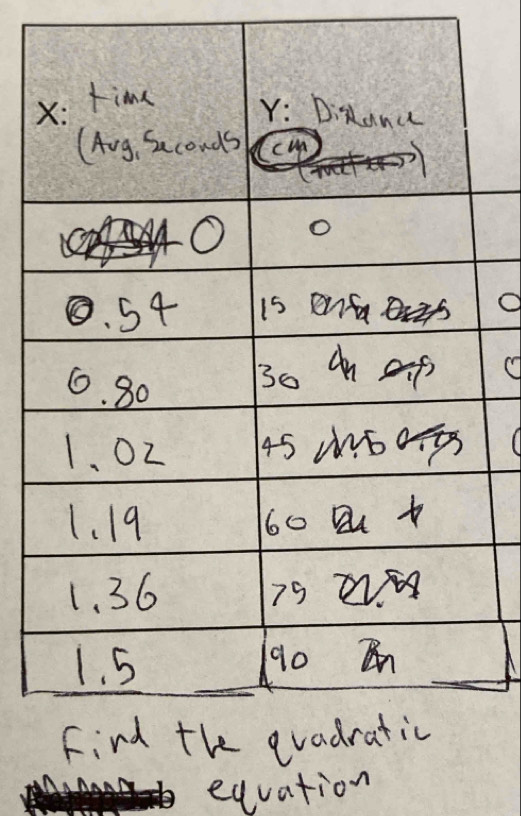 X: time Y: Distance
(Avg. Seconds cm
0 0
0.54 15
0.80 30
1.02 45
1.19 60
1.36 75
1.5 90
Find the quadratic
equation